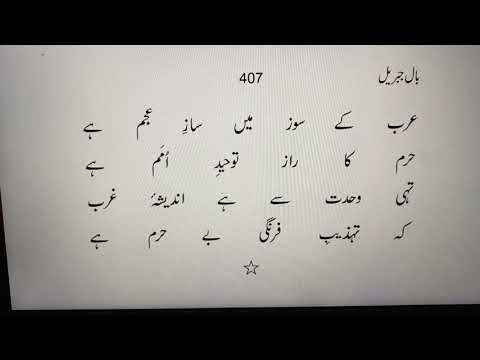 بال جبریل 407
عرب کے سوز میں سازِ عجم ہے
حرم کا راز توحیدِ اُمَم ہے
تہی وحدت سے ہے اندیشۂ غرب
کہ تہذیبِ فرنگی بے حرم ہے